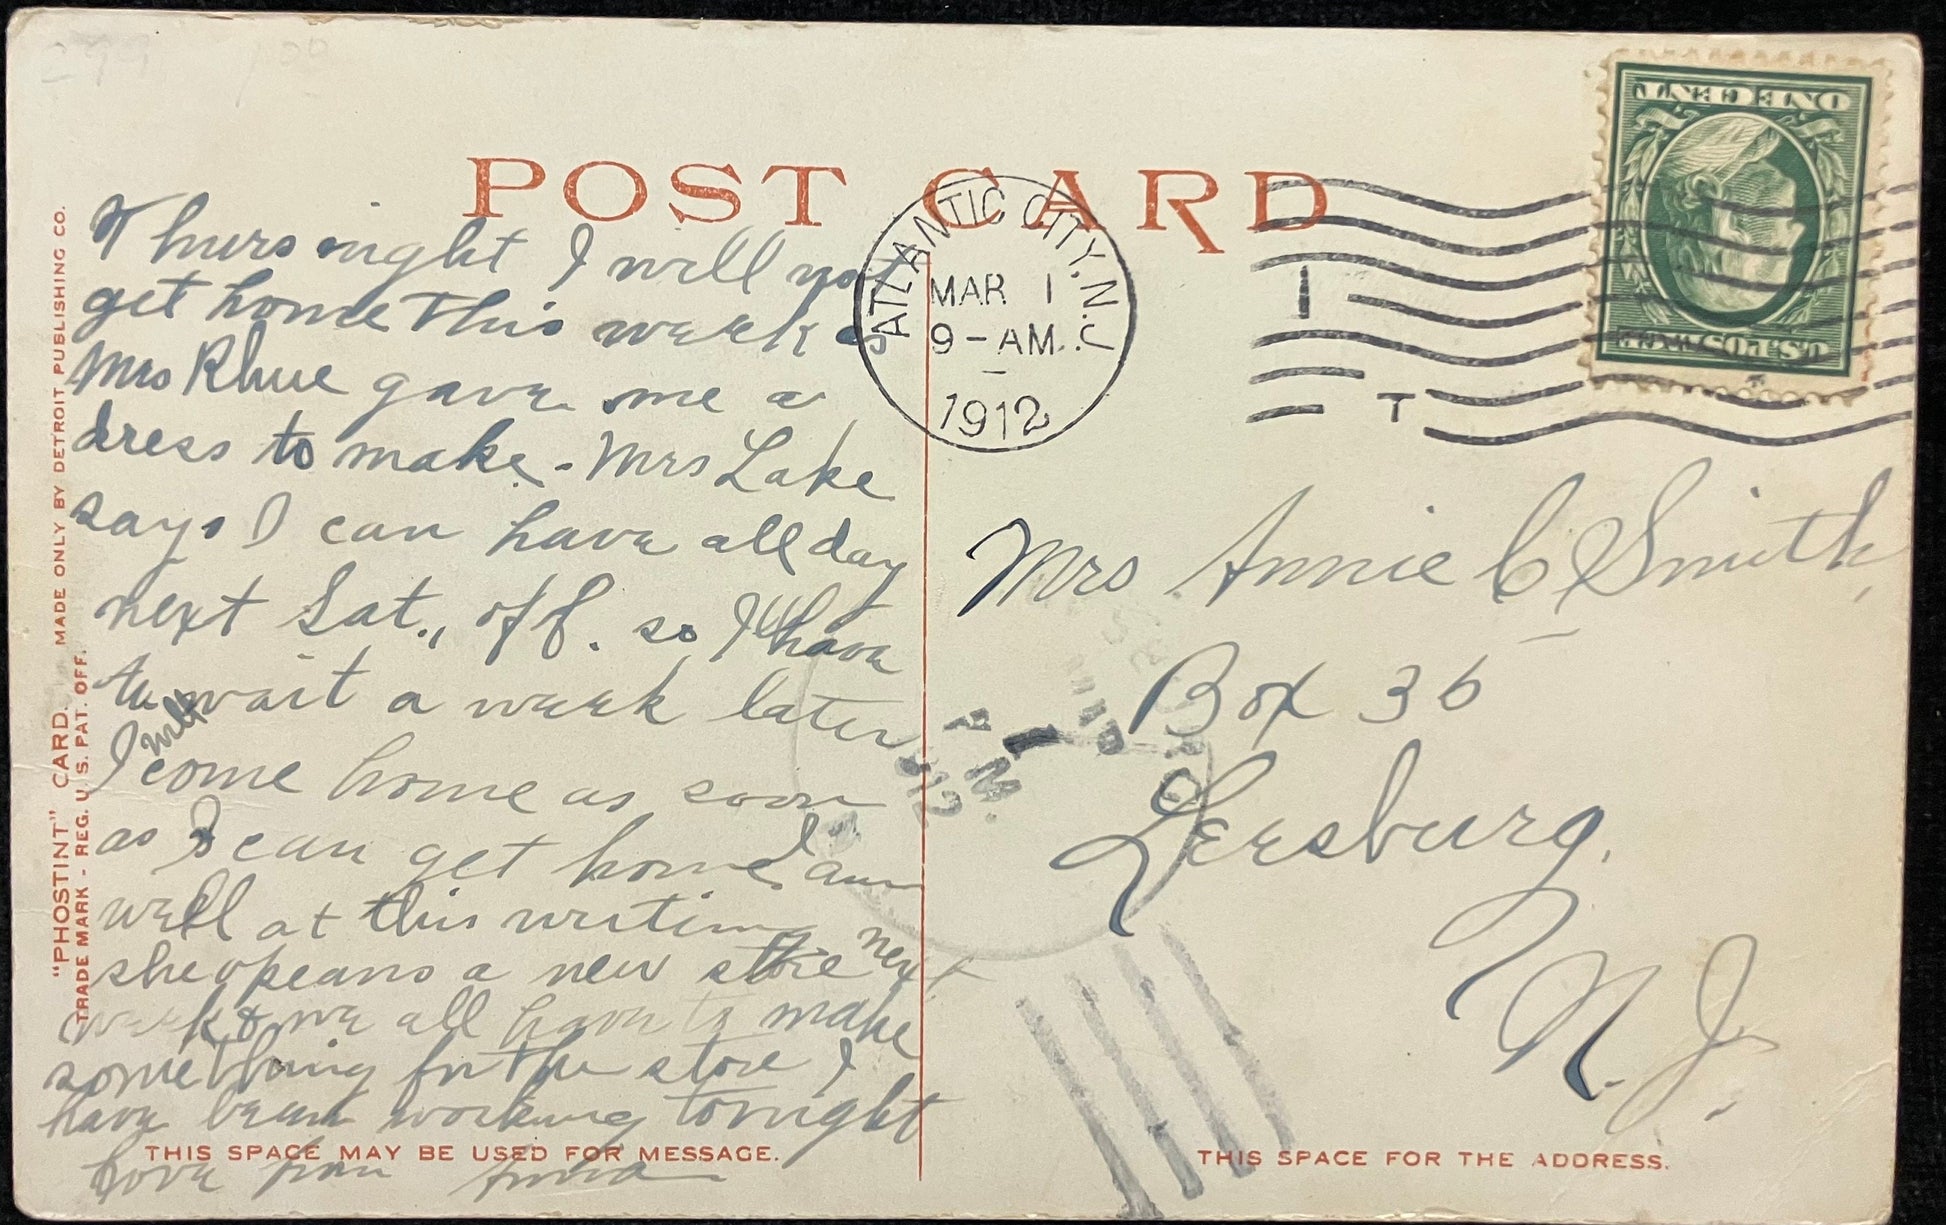 299 1 00
POST CARD
ATLANTIC CITY, N.J.
MAR 1
9-AM.
1912
1
T
ONE CENT
U.S. POSTAGE
Thurs night I will not
get home this week as
Mrs Rhue gave me a
dress to make. Mrs Lake
says I can have all day
next Sat., off. so I'll have
to wait a week later
I will come home as soon
as I can get home I am
well at this writing
she opeans a new store next
week & we all have to make
something for the store I
have been working tonight
love from Anna
Mrs Annie C Smith,
Box 36
Leesburg.
N. J.
P M.
1912
"PHOSTINT" CARD. MADE ONLY BY DETROIT PUBLISHING CO.
TRADE MARK - REG. U.S. PAT. OFF.
THIS SPACE MAY BE USED FOR MESSAGE.
THIS SPACE FOR THE ADDRESS.